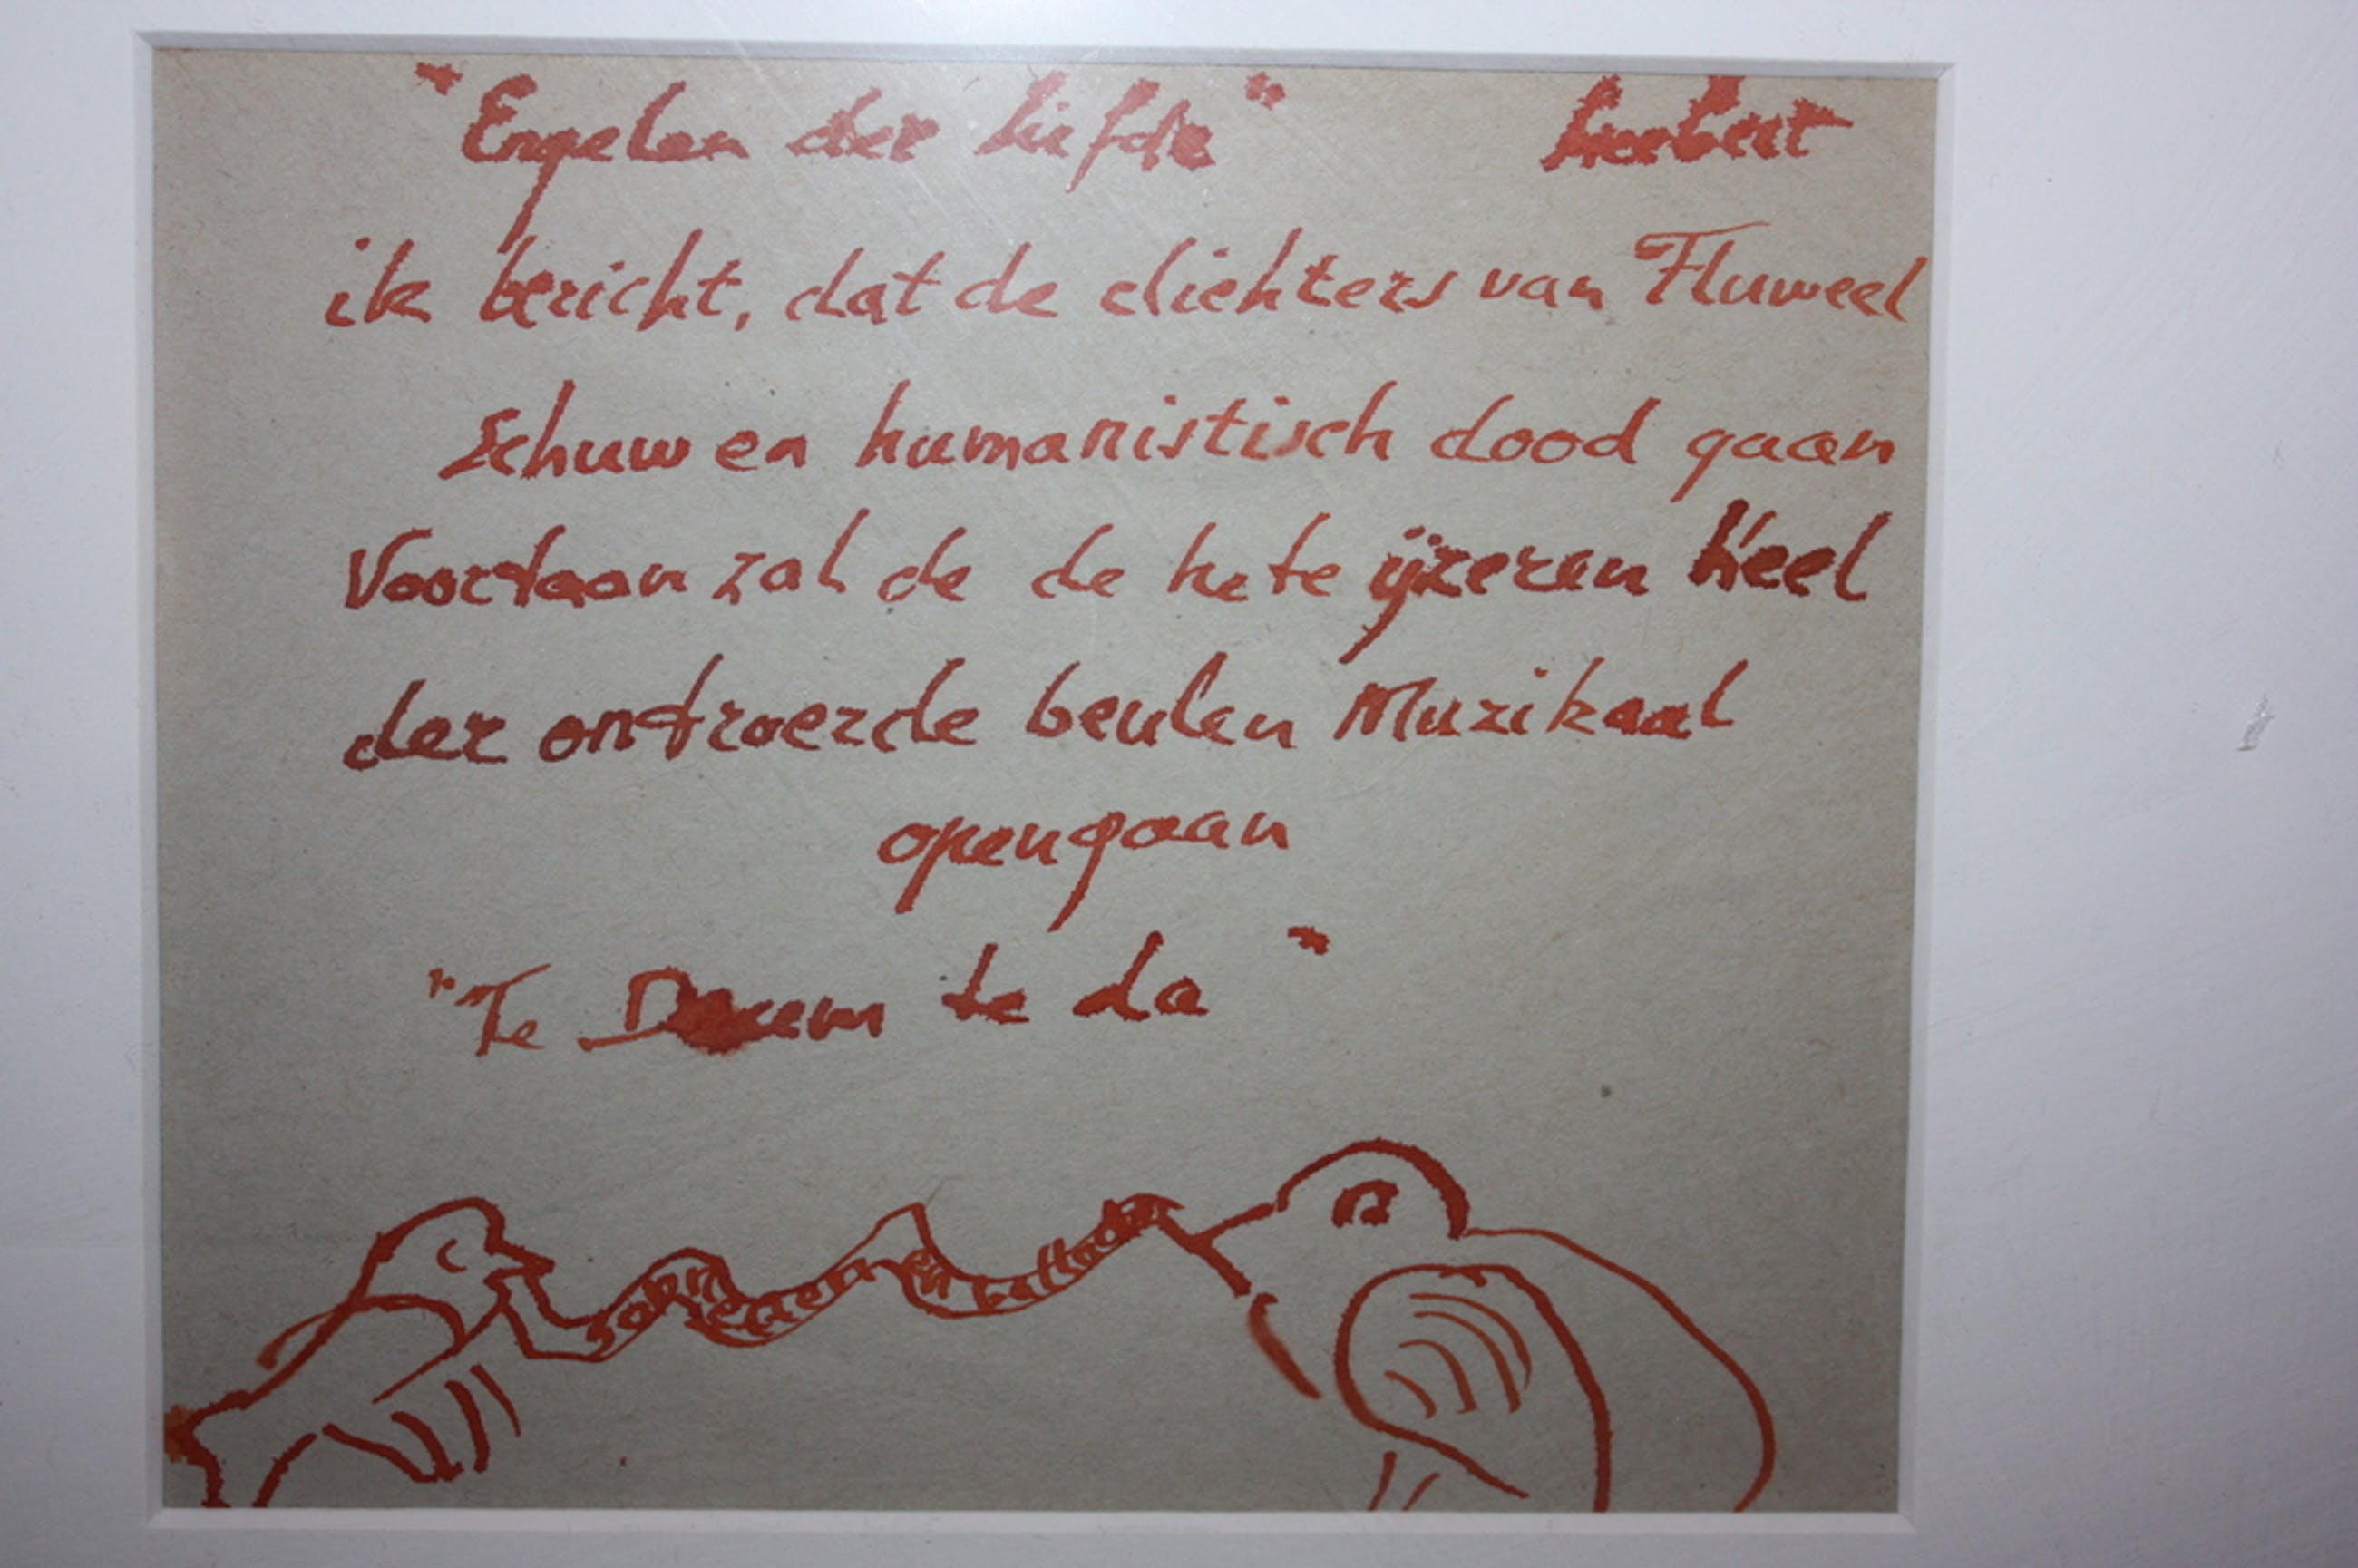 "Engelen der liefde" herbert
ik bericht, dat de dichters van Fluweel
schuw en humanistisch dood gaan
Voortaan zal de de hete ijzeren keel
der ontroerde beulen Muzikaal
opengaan
"Te te da"